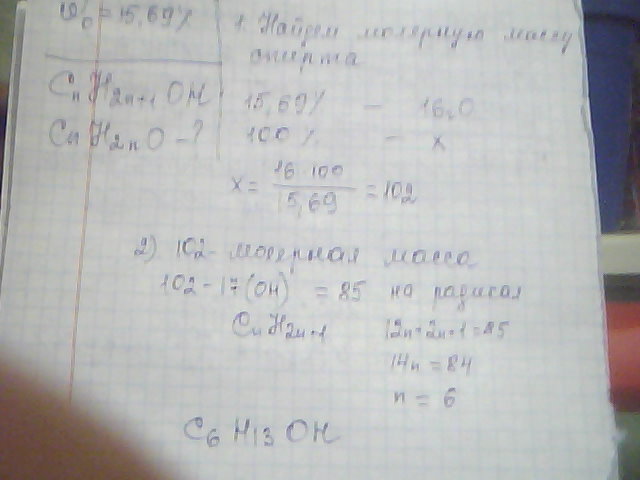 w₀ = 15,69%
CₙH₂ₙ₊₁OH
CₙH₂ₙO - ?
1. Найдем молярную массу
спирта
15,69% - 16,0
100% - x
x = 16·100 / 15,69 = 102
2) 102 - молярная масса
102 - 17(OH) = 85 на радикал
CₙH₂ₙ₊₁ 12n+2n+1=85
14n = 84
n = 6
C₆H₁₃OH